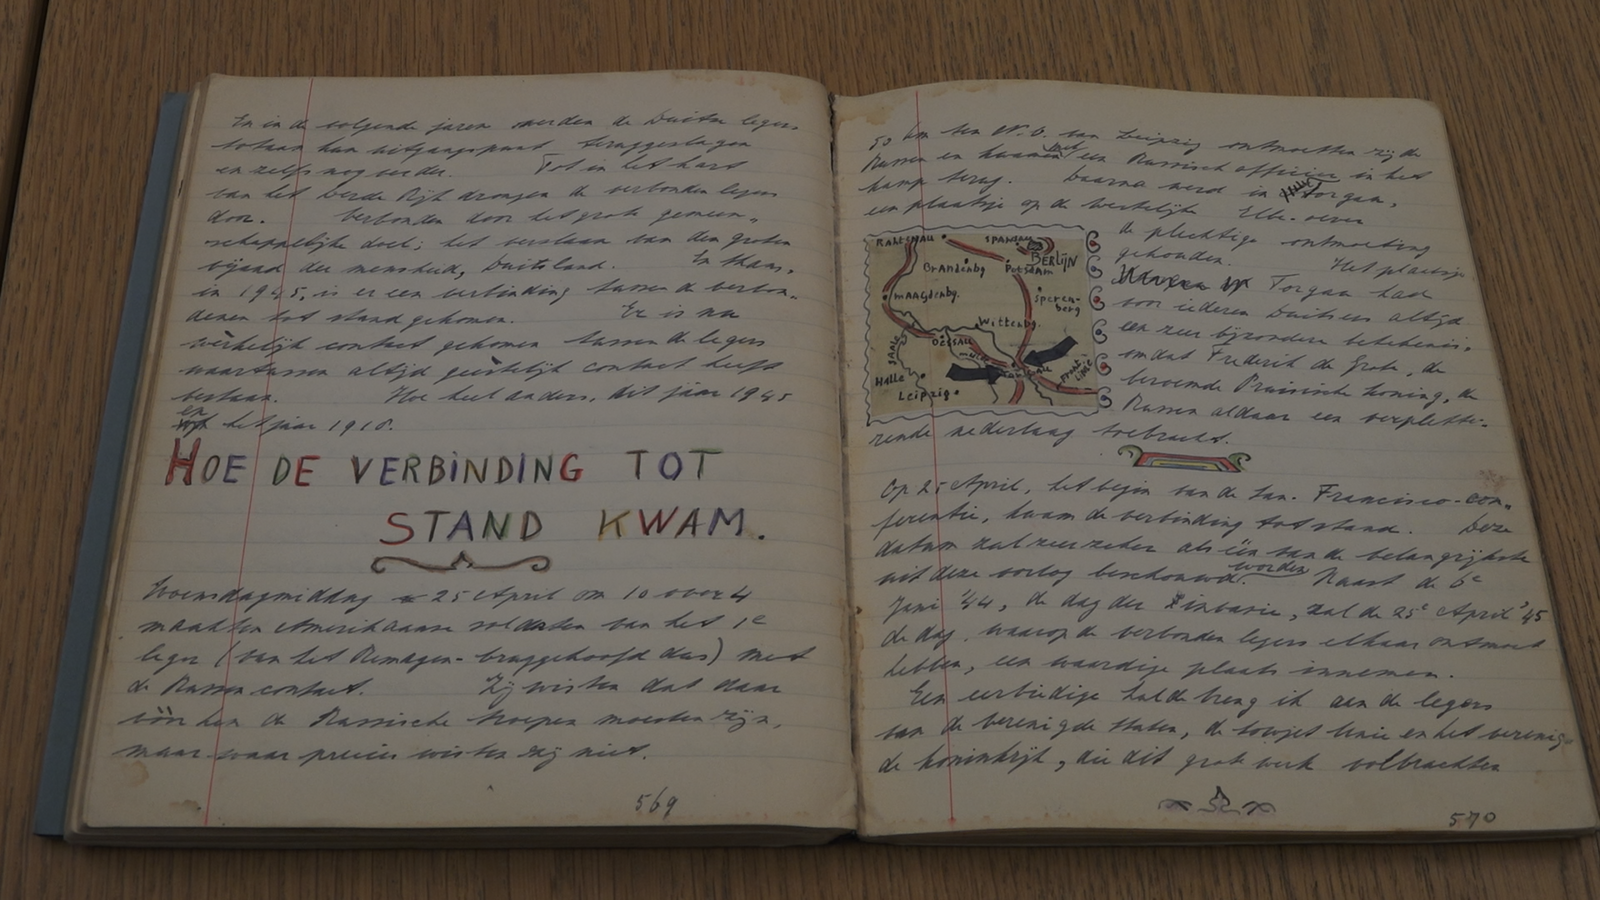 En in de volgende jaren werden de Duitse legers
totaan hun uitgangspunt teruggeslagen
en zelfs nog verder. Tot in het hart
van het Derde Rijk drongen de verbonden legers
door. Verbonden door het grote gemeen-
schappelijke doel; het verslaan van den groten
vijand der mensheid, Duitsland. En thans,
in 1945, is er een verbinding tussen de verbon-
denen tot stand gekomen. Er is nu
werkelijk contact gekomen tussen de legers
waartussen altijd geestelijk contact heeft
bestaan. Hoe heel anders, dit jaar 1945
en het jaar 1918.
HOE DE VERBINDING TOT
STAND KWAM.
Woensdagmiddag 25 April om 10 over 4
maakten Amerikaanse soldaten van het 1e
leger (van het Remagen-bruggehoofd dus) met
de Russen contact. Zij wisten dat daar
vóór hen de Russische troepen moesten zijn,
maar waar precies wisten zij niet.
569
50 km ten N.O. van Leipzig ontmoetten zij de
Russen en kwamen met een Russisch officier in het
kamp terug. Daarna werd in Torgau,
een plaatsje op de westelijke Elbe-oever
de plechtige ontmoeting
gehouden. Het plaatsje
Torgau had
voor iederen Duitsers altijd
een zeer bijzondere betekenis,
omdat Frederik de Grote, de
beroemde Pruisische koning, de
Russen aldaar een verplette-
rende nederlaag toebracht.
RATHENAU SPANDAU
BERLIJN
Brandenbg. Potsdam
MAAGDENBG. Speren-
berg
Wittenbg.
DESSAU
SAALE MULDE
TORGAU
Halle
Leipzig
Op 25 April, het begin van de San-Francisco-con-
ferentie, kwam de verbinding tot stand. Deze
datum zal zeer zeker als één van de belangrijkste
uit deze oorlog beschouwd worden. Naast de 6e
Juni '44, de dag der invasie, zal de 25e April '45
de dag, waarop de verbonden legers elkaar ontmoet
hebben, een waardige plaats innemen.
Een eerbiedige hulde breng ik aan de legers
van de verenigde staten, de sowjet unie en het verenig-
de koninkrijk, die dit grote werk volbrachten
570